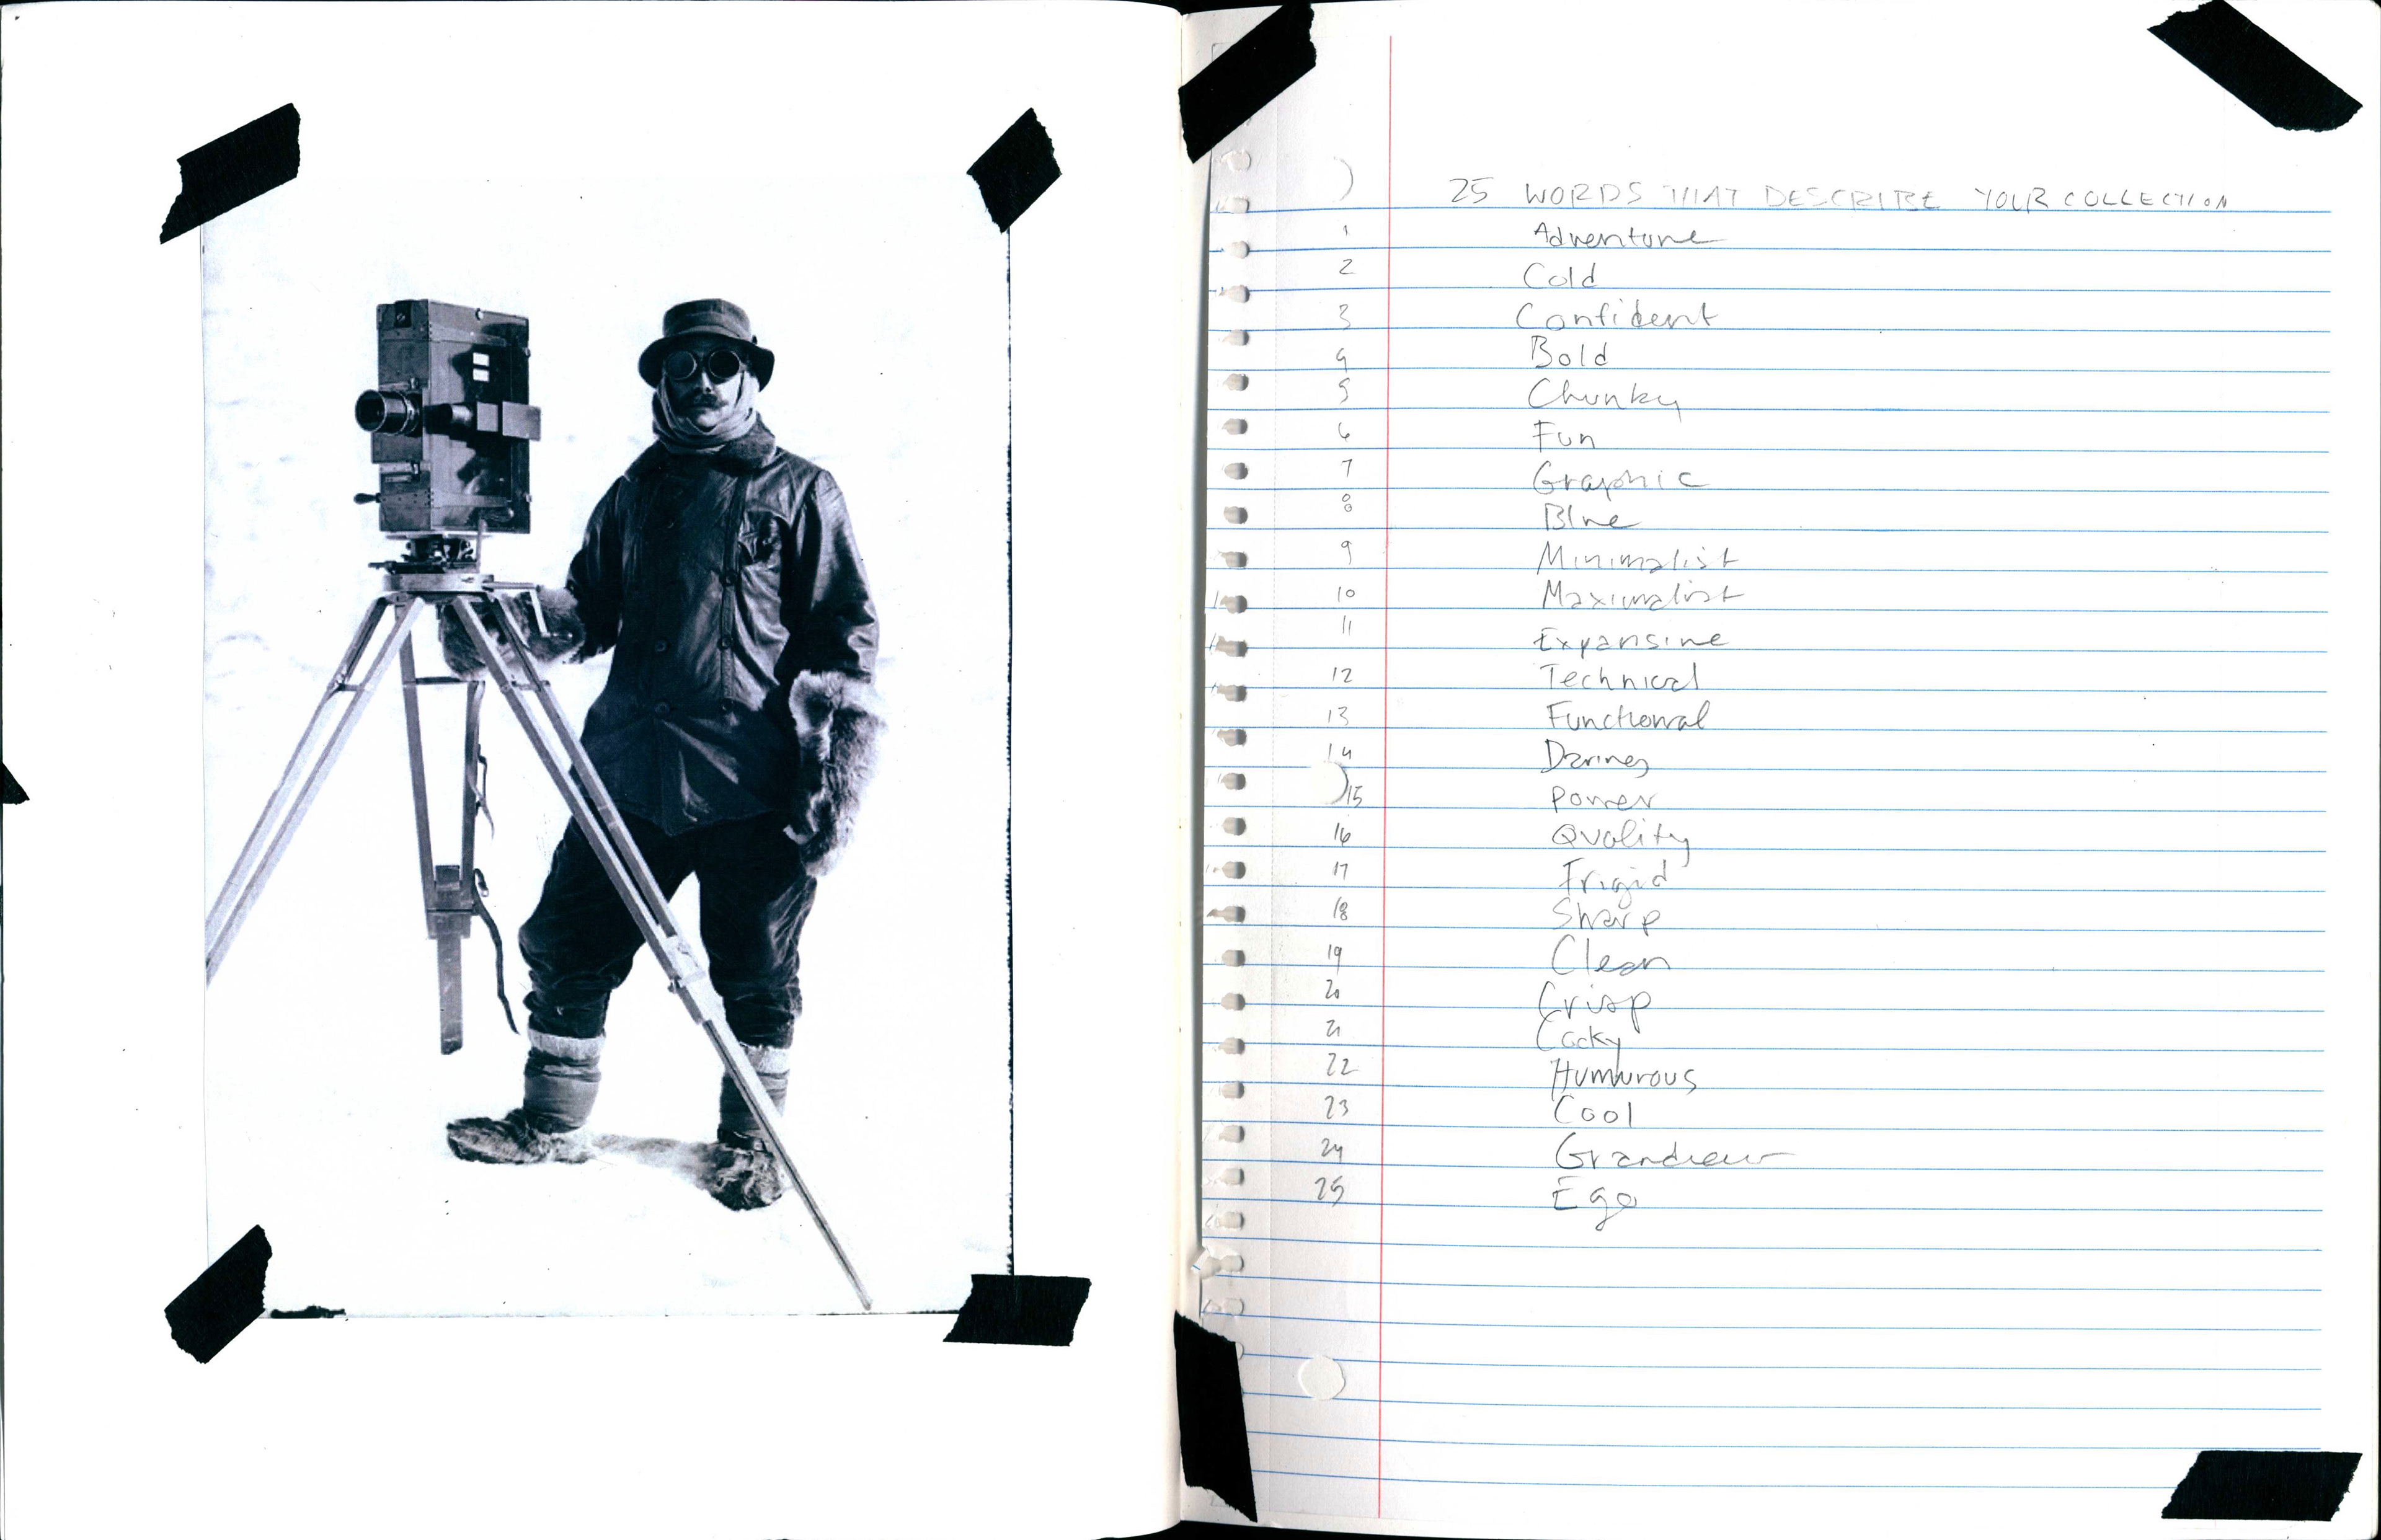 25 WORDS THAT DESCRIBE YOUR COLLECTION
1 Adventure
2 Cold
3 Confident
4 Bold
5 Chunky
6 Fun
7 Graphic
8 Blue
9 Minimalist
10 Maximalist
11 Expansive
12 Technical
13 Functional
14 Daring
15 Power
16 Quality
17 Frigid
18 Sharp
19 Clean
20 Crisp
21 Cocky
22 Humurous
23 Cool
24 Grandeur
25 Ego